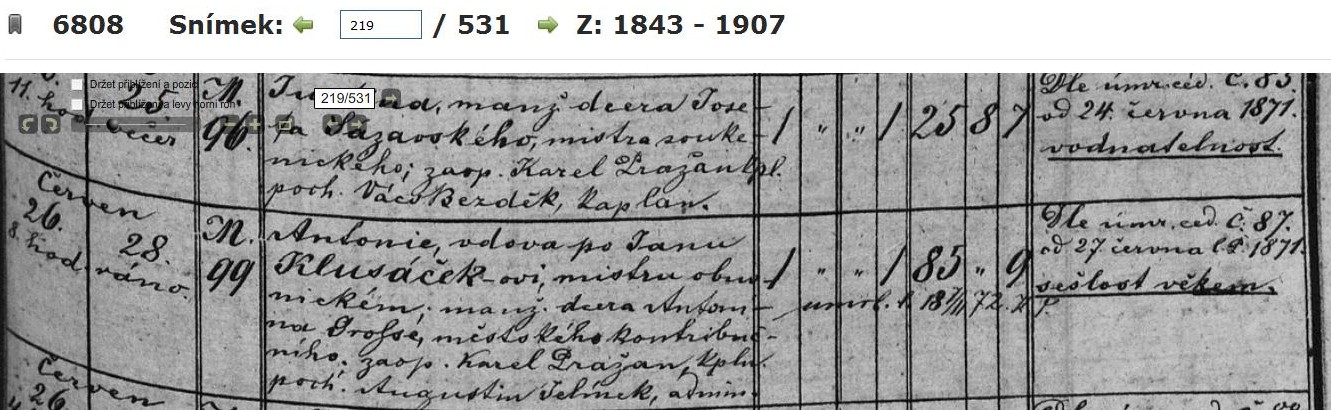 6808 Snímek: 219 / 531 Z: 1843 - 1907
Držet přiblížení a pozici
Držet přiblížení a levý horní roh
219/531
11. hod 25 večer
M. 96.
manž. dcera Jose-
fa Sázavského, mistra souke-
nického; zaop. Karel Pražan kpl.
poch. Václ. Bezděk, kaplan.
1 " " 1 25 8 7
Dle úmr. céd. č. 85.
od 24. června 1871.
vodnatelnost.
Červen
26. 28.
8. hod. ráno.
M. 99
Antonie, vdova po Janu
Klusáček-ovi, mistru obuv-
nickém; manž. dcera Anton-
na Grosse, městského kontribuč-
ního. zaop. Karel Pražan, kpln.
poch. Augustin Jelínek, admin.
1 " " 1 85 " 9
Dle úmr. ced. č. 87.
od 27. června 1871.
sešlost věkem.
Červen
26.